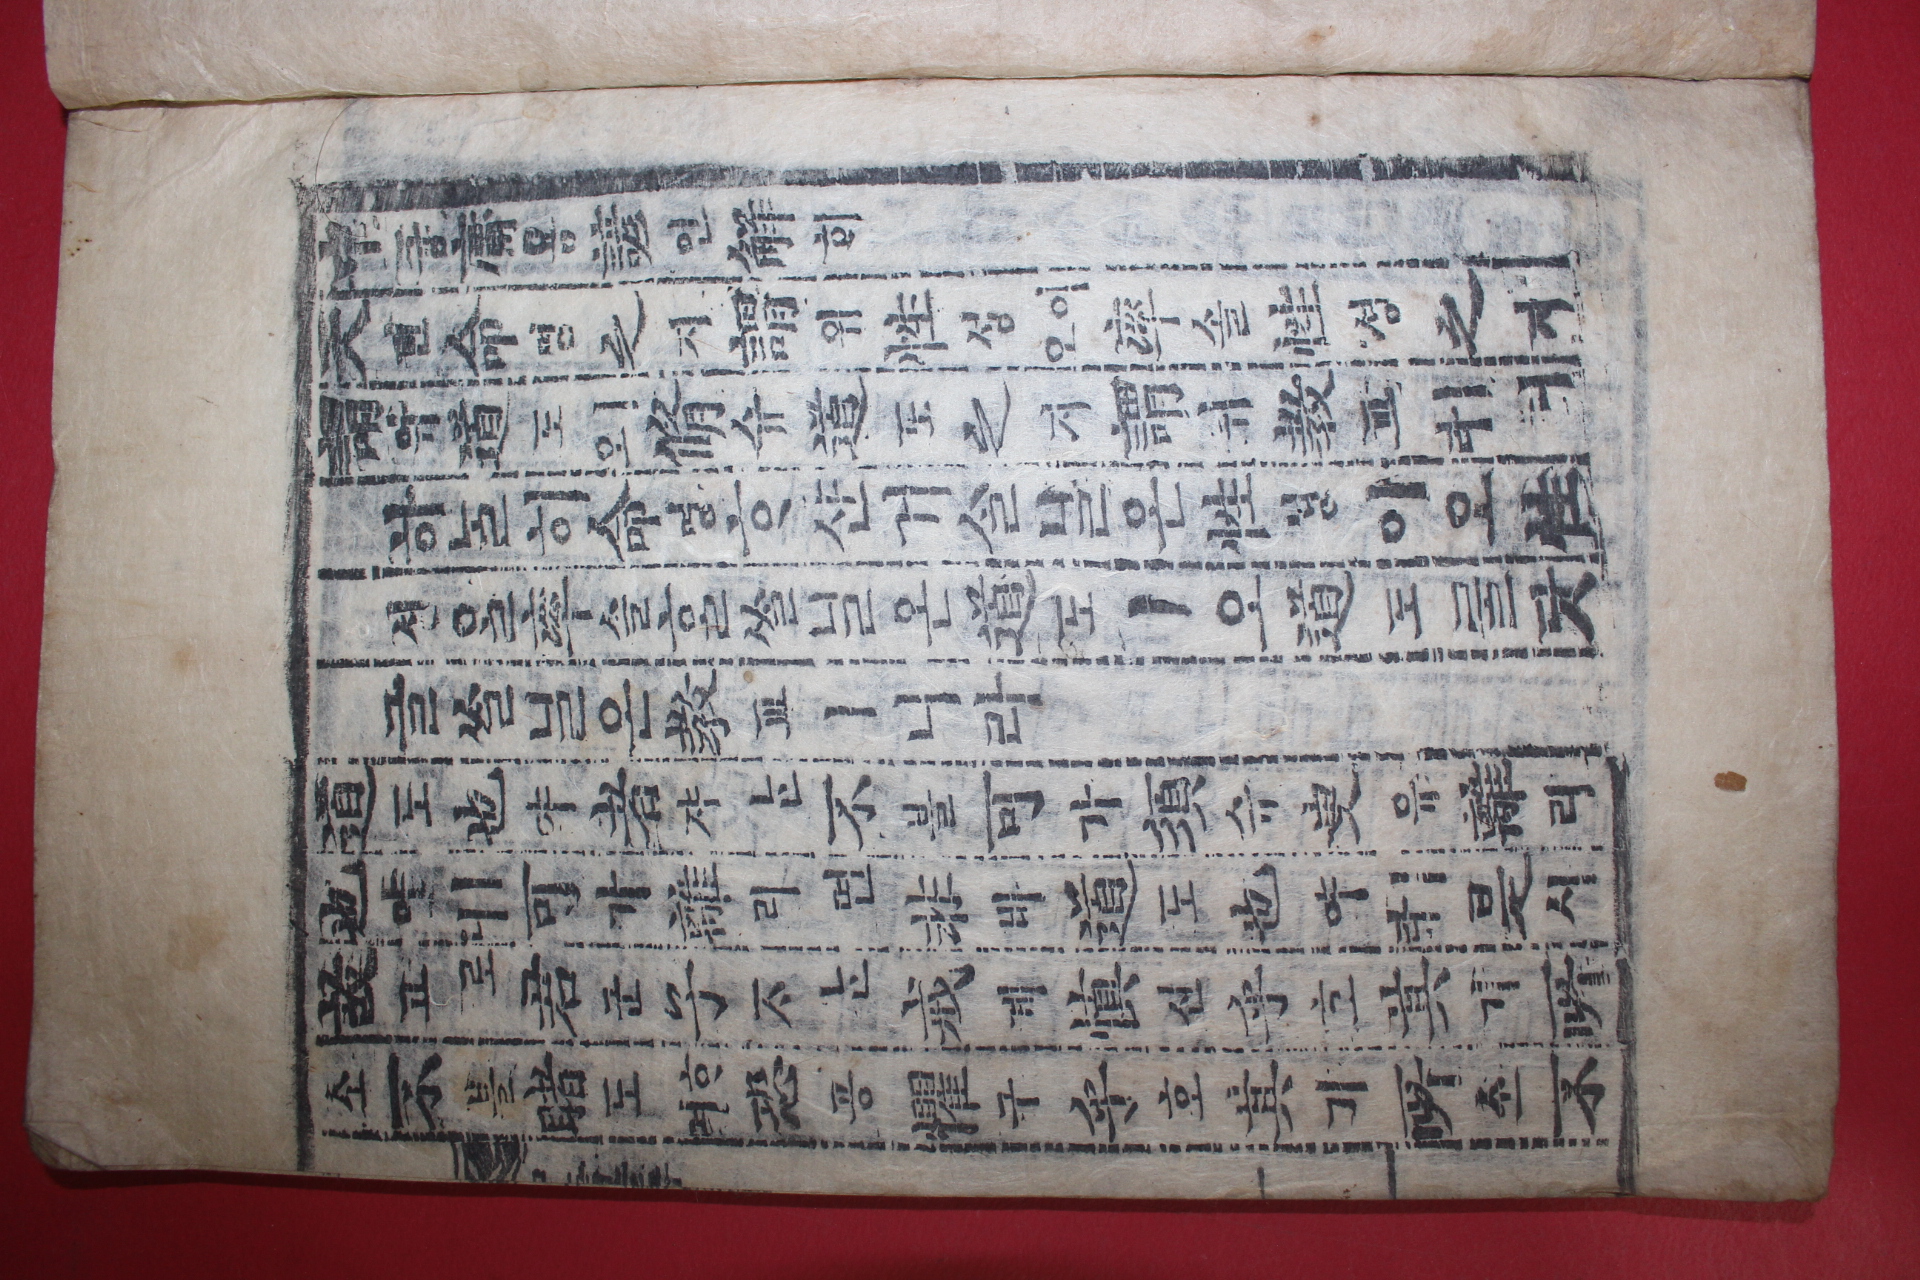 中듕庸용諺언解ᄒᆡ
天텬命명之지謂위性셩이오率솔性셩之지
謂위道도ㅣ오修슈道도之지謂위敎교ㅣ니라
하ᄂᆞᆯ히命명ᄒᆞ샨거슬닐온性셩이오性
셩을率솔ᄒᆞᆫ쓸닐온道도ㅣ오道도를닷
글쓸닐온敎교ㅣ니라
道도也야者쟈ᄂᆞᆫ不블可가須슈臾유離리
也야ㅣ니可가離리면非비道도也야ㅣ라是시
故고로君군子ᄌᆞᄂᆞᆫ戒계愼신乎호其기所
소不블睹도ᄒᆞ며恐공懼구乎호其기所소不